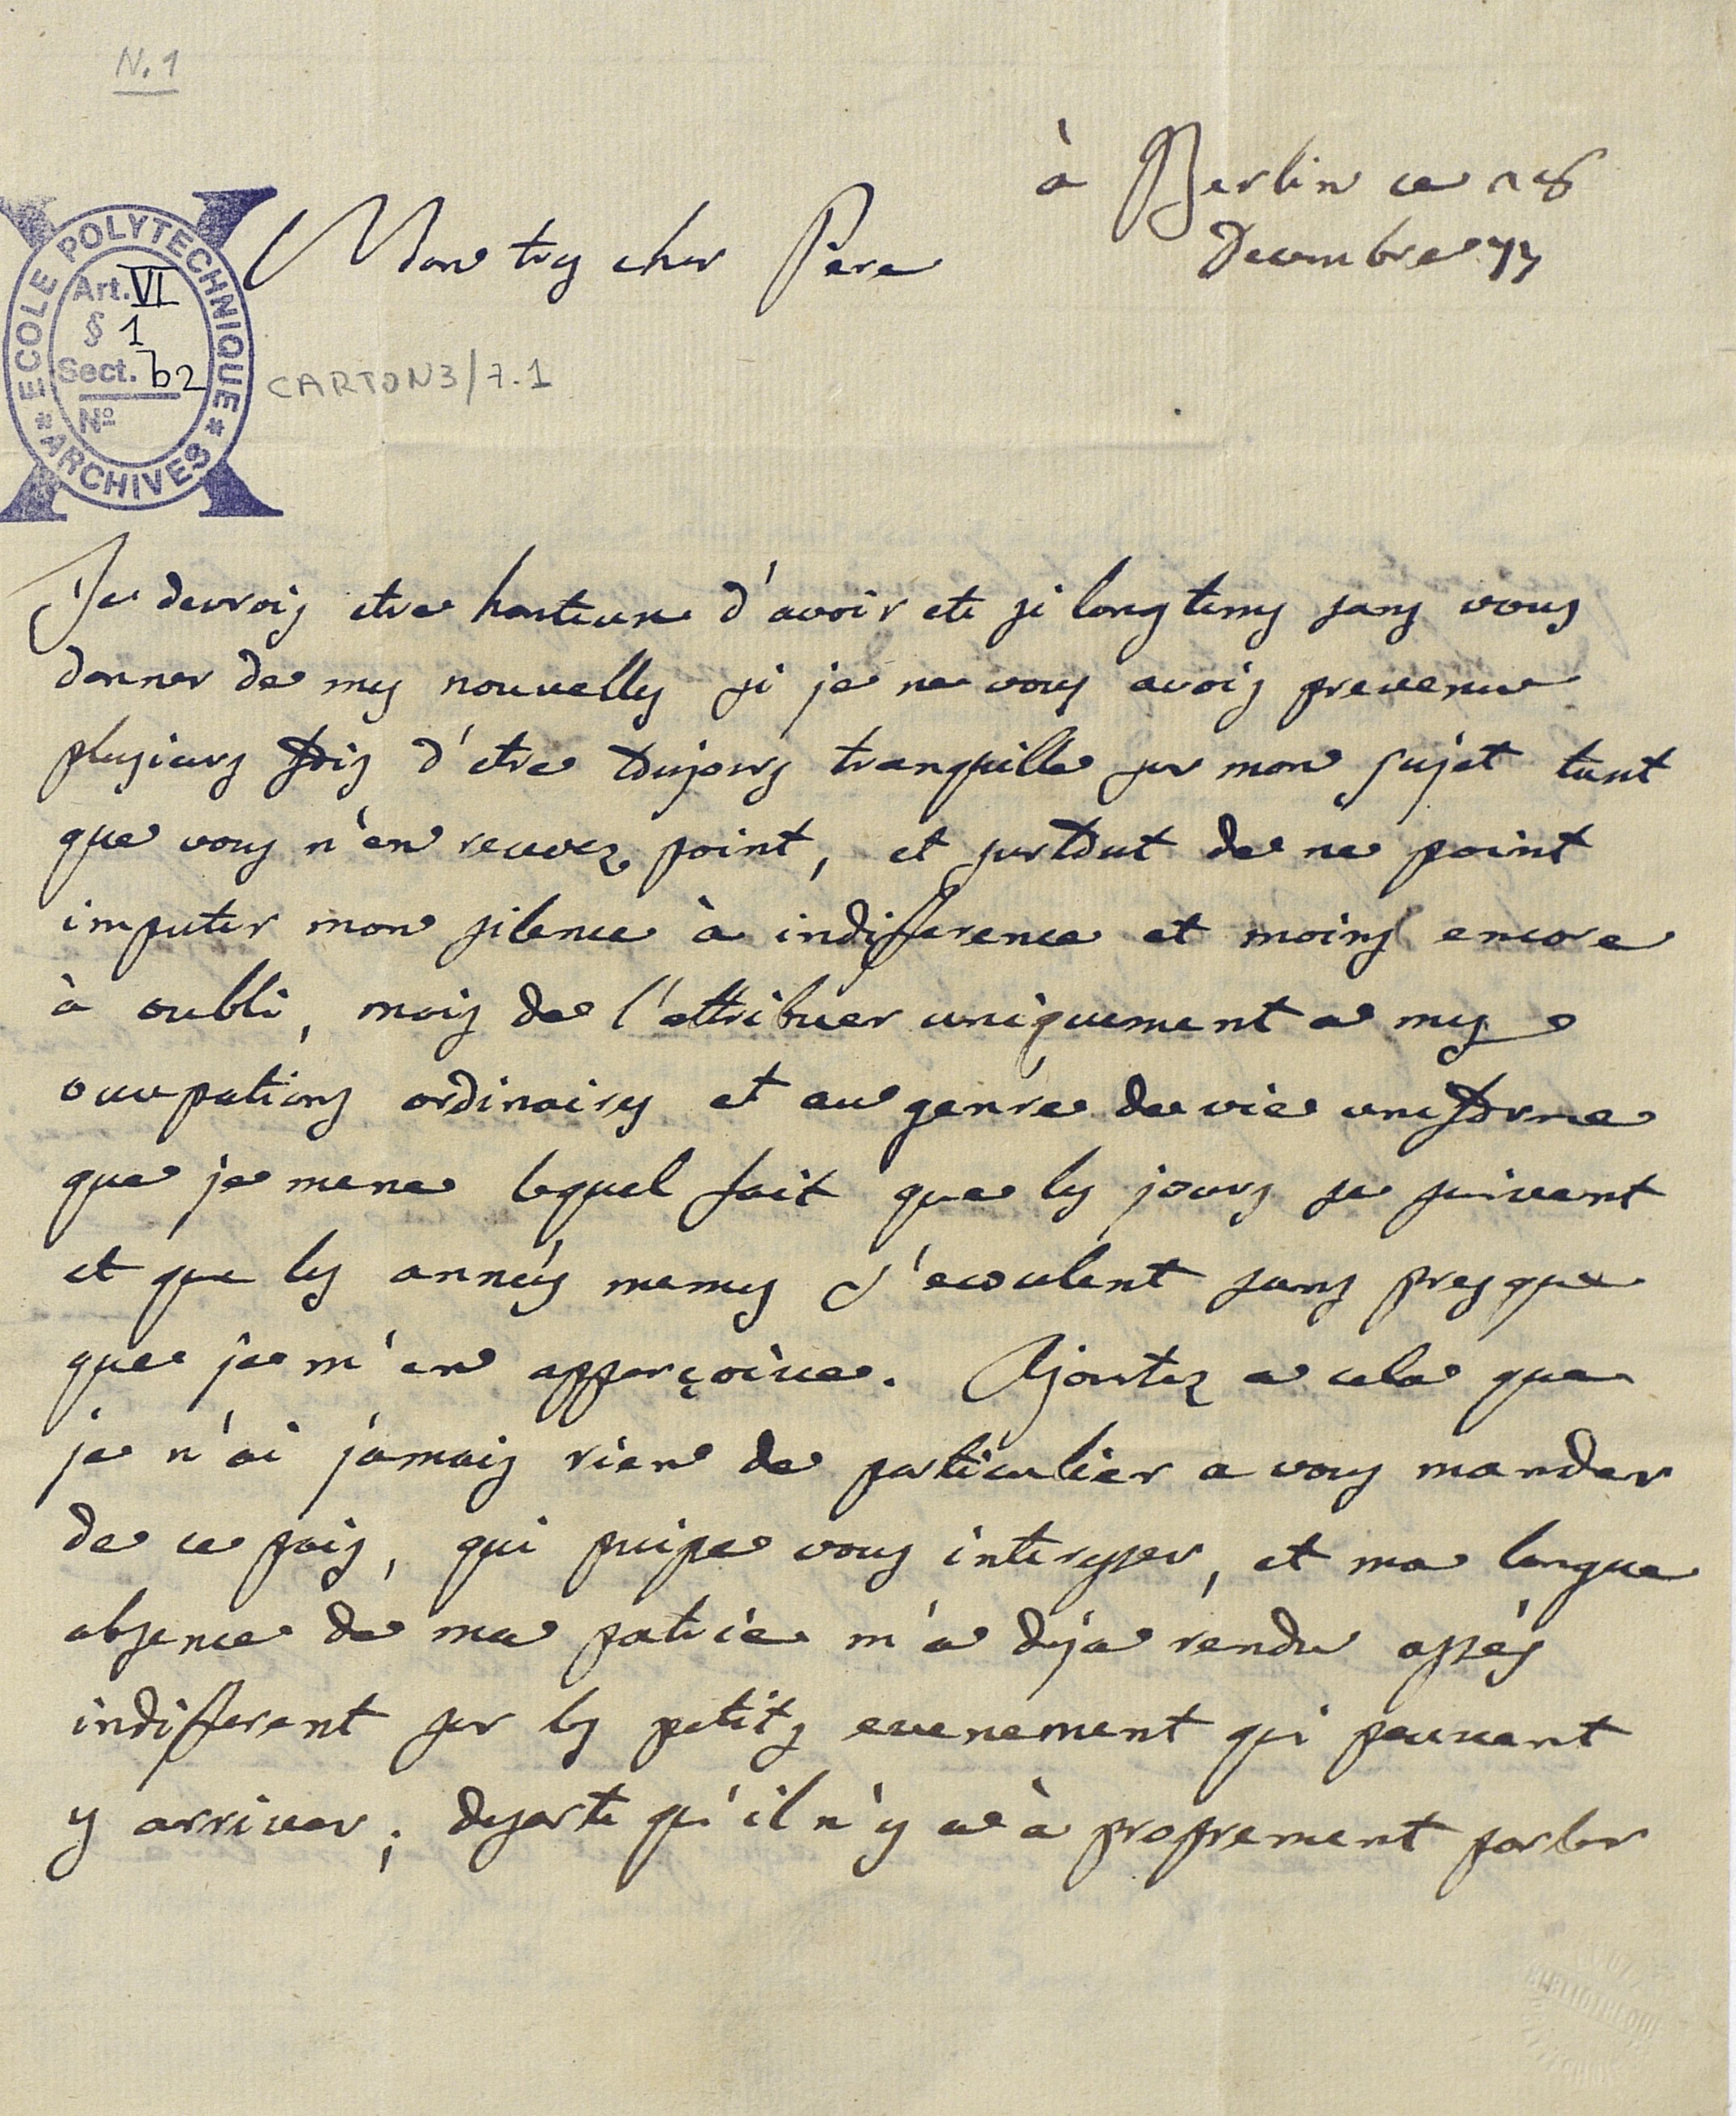 N. 1
à Berlin ce 18
Decembre 77
Mon tres cher Pere
ECOLE POLYTECHNIQUE
Art. VI
§ 1
Sect. b2
No
* ARCHIVES *
CARTON3/7.1
Je devrois etre honteux d'avoir eté si longtems sans vous
donner de mes nouvelles si je ne vous avois prevenu
plusieurs fois d'etre toujours tranquille sur mon sujet tant
que vous n'en recevez point, et surtout de ne point
imputer mon silence à indifference et moins encore
à oubli, mais de l'attribuer uniquement a mes
occupations ordinaires et au genre de vie uniforme
que je mene lequel fait que les jours se suivent
et que les années memes s'ecoulent sans presque
que je m'en apperçoive. Ajoutez a cela que
je n'ai jamais rien de particulier a vous mander
de ce pais, qui puisse vous interesser, et ma longue
absence de ma patrie m'a deja rendu assés
indifferent sur les petits evenement qui peuvent
y arriver; desorte qu'il n'y a à proprement parler